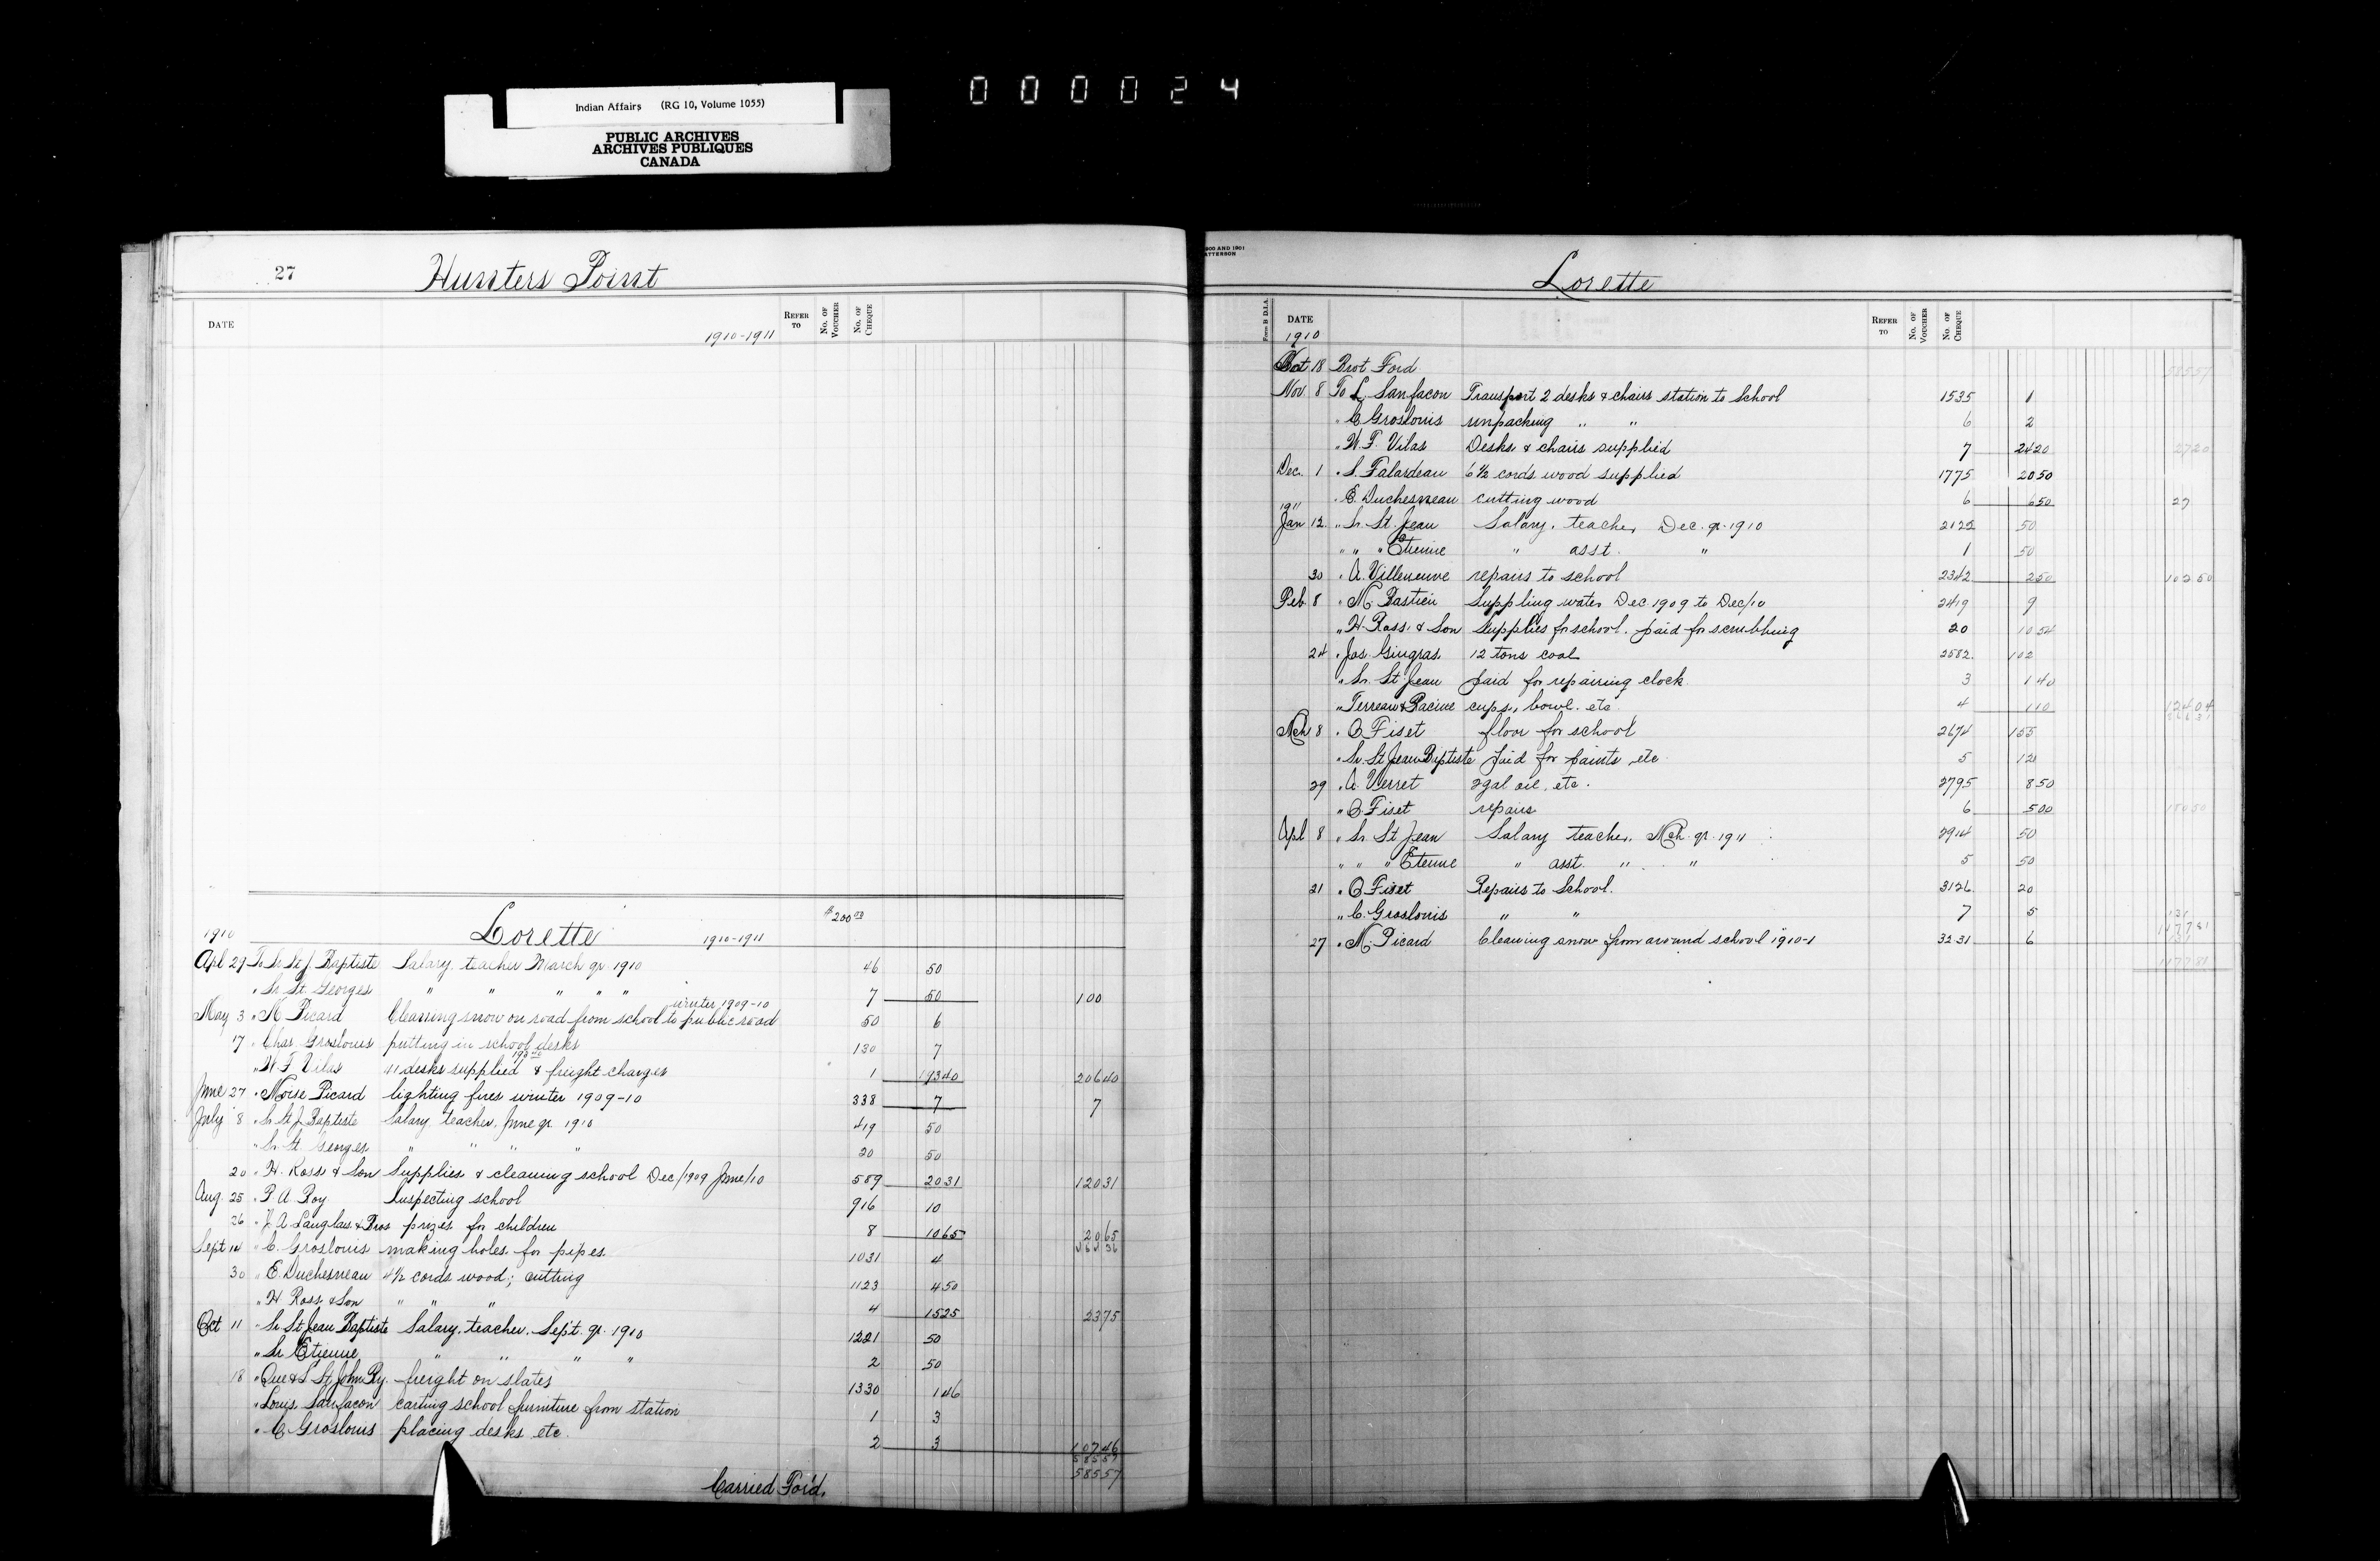 Indian Affairs (RG 10, Volume 1055)
PUBLIC ARCHIVES
ARCHIVES PUBLIQUES
CANADA
000024
27 Hunters Point
DATE 1910-1911 REFER TO No. OF VOUCHER No. OF CHEQUE
$200.00
1910 Lorette 1910-1911
Apl 29 To Sr St J. Baptiste Salary, teacher March qr 1910 46 50
" Sr. St. Georges " " " " " 7 50 100
winter 1909-10
May 3 " M Picard Clearing snow on road from school to public road 50 6
17 " Chas. Groslouis putting in school desks 130 7
" W. F. Vilas 41 desks supplied & freight charges 1 19340 20640
June 27 " Moise Picard lighting fires winter 1909-10 338 7 7
July 8 " Sr St J. Baptiste Salary, teacher, June qr 1910 419 50
" Sr. St Georges " " " " 20 50
20 " H. Ross & Son Supplies & cleaning school Dec/1909 June/10 559 2031 12031
Aug. 25 " P. A. Roy Inspecting school 916 10
26 " J. A. Langlais & Bros prizes for children 8 1065 2065
Sept 14 " C. Groslouis making holes for pipes 1031 4
30 " E. Duchesneau 4½ cords wood; cutting 1123 450
" H Ross & Son " " " 4 1525 2375
Oct 11 " Sr St Jean Baptiste Salary, teacher, Sept. qr. 1910 1221 50
" Sr Etienne " " " " 2 50
18 " Que & L St John Ry. freight on slates 1330 146
" Louis Sanfacon carting school furniture from station 1 3
" C Groslouis placing desks etc. 2 3 10746
58557
58557
Carried For'd.
1900 AND 1901
Lorette
Form B D.I.A. DATE REFER TO No. OF VOUCHER No. OF CHEQUE
1910
Oct 18 Brot Ford 58557
Nov. 8 To L. Sanfacon Transport 2 desks & chairs station to School 1535 1
" C Groslouis unpacking " " 6 2
" W. F. Vilas Desks & chairs supplied 7 2420 2720
Dec. 1 " S. Falardeau 6½ cords wood supplied 1775 2050
" E. Duchesneau cutting wood 6 650 27
1911
Jan 12 " Sr. St. Jean Salary, teacher Dec. qr. 1910 2122 50
" " " Etienne " asst. " 1 50
30 " A. Villeneuve repairs to school 2342 250 10250
Feb 8 " M. Bastien Suppling water Dec 1909 to Dec/10 2419 9
" H. Ross & Son Supplies for school. paid for scrubbing 20 1054
24 " Jos. Gingras 12 tons coal 2582 102
" Sr. St Jean paid for repairing clock 3 140
" Terreau & Racine cups, bowl. etc 4 110 12404
Mch 8 " O Fiset floor for school 2674 155
" Sr. St Jean Baptiste paid for paints etc 5 12
29 " A. Verret 2 gal oil, etc. 2795 850
" O. Fiset repairs 6 500 18050
Apl 8 " Sr St Jean Salary teacher, Mch. qr. 1911 2914 50
" " " Etienne " asst. " " 5 50
21 " O Fiset Repairs to School. 3126 20
" C. Groslouis " " 7 5
27 " M. Picard Cleaning snow from around school 1910-1 3231 6 131
117781